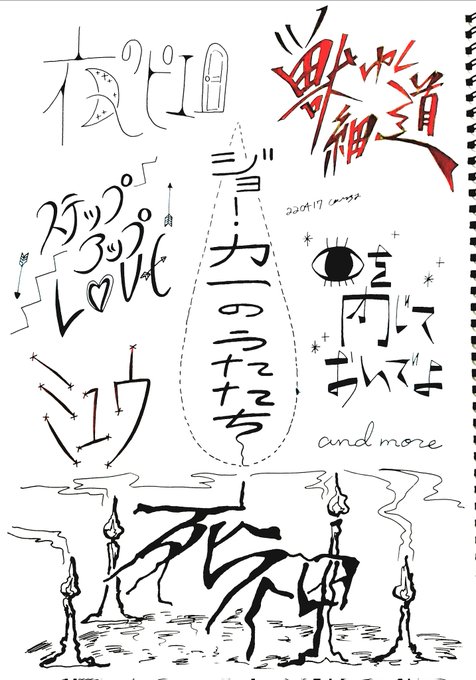 夜のピエロ
獣ゆく
細道
ジョー・力一のうたたち
220417
ステップ
アップ
LOVE
目を
閉じて
おいでよ
ミュウ
and more
死神